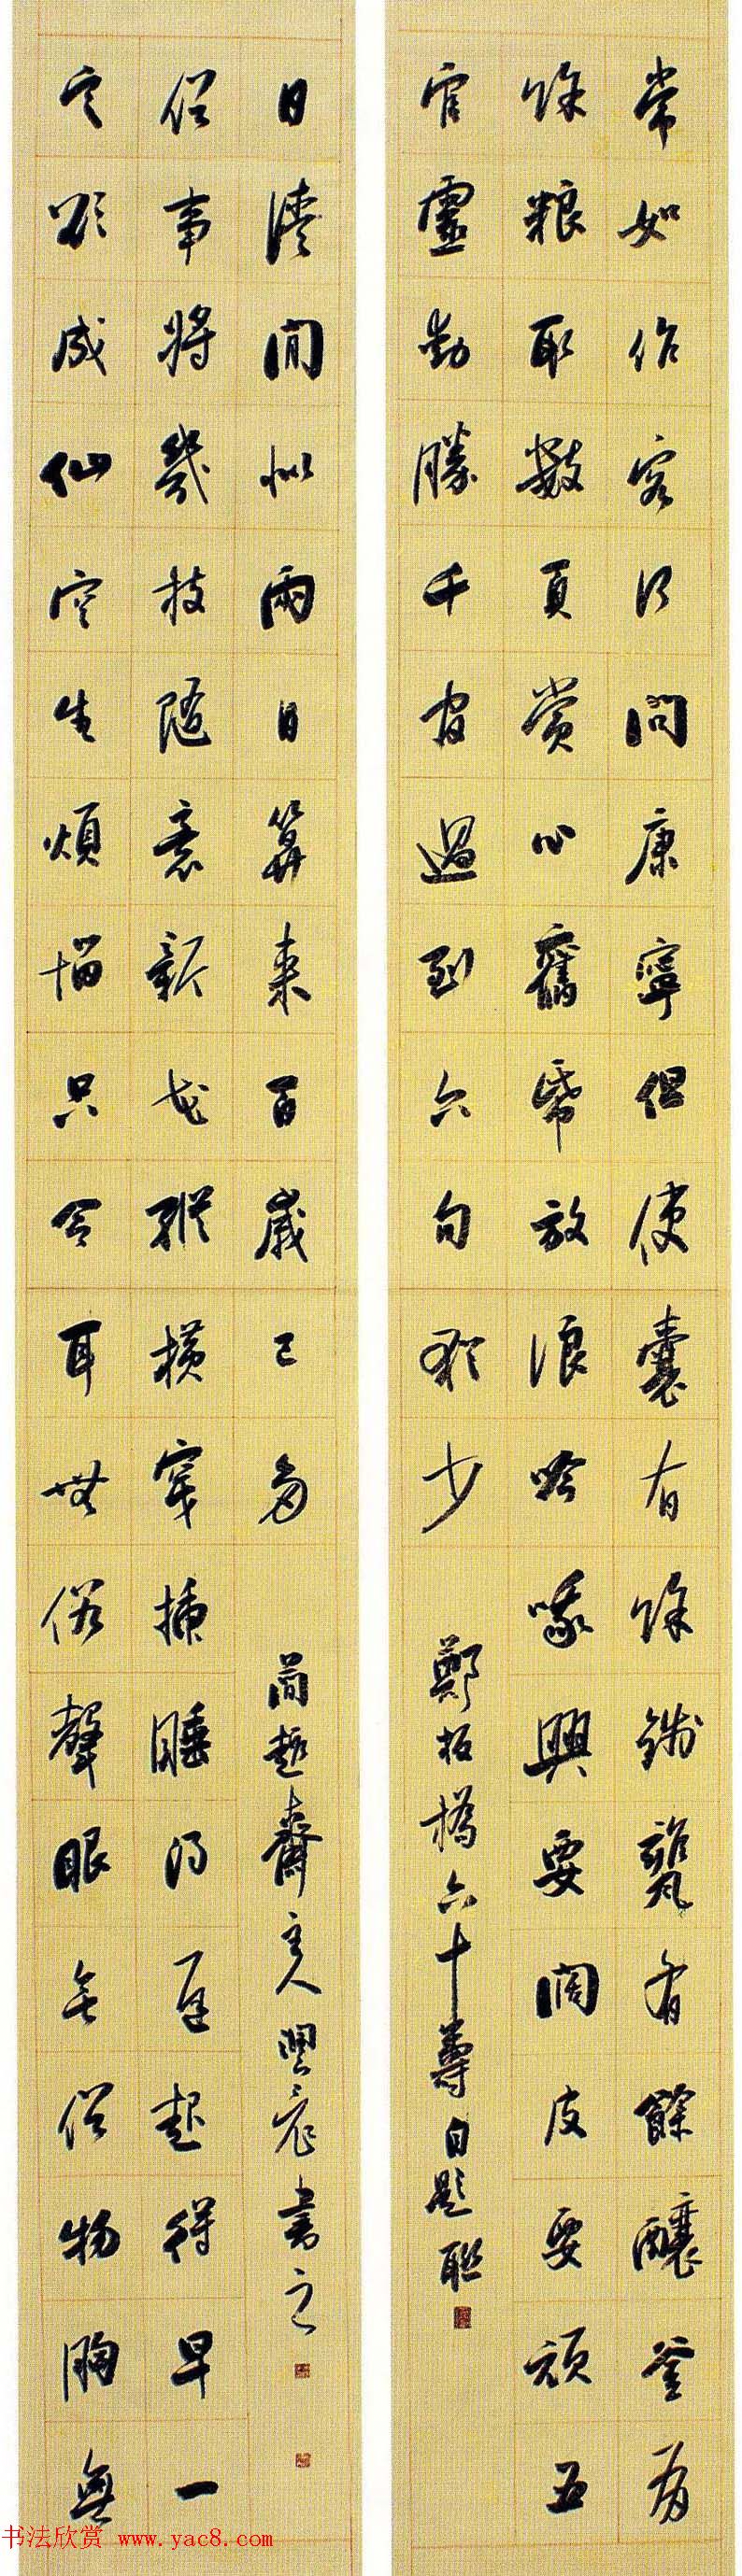 常如作客何問康寧但使囊有馀錢甕有餘釀釜有
馀粮取數頁賞心舊帋放浪吟哦興要闊皮要頑五
官靈動勝千官過到六旬猶少
鄭板橋六十壽自題聯
定欲成仙空生煩惱只令耳無俗聲眼無俗物胸無
俗事將幾枝隨意新花縱橫穿插睡得遲起得早一
日清閒似兩日算來百歲已多
簡趣齋主人興書之
书法欣赏 www.yac8.com